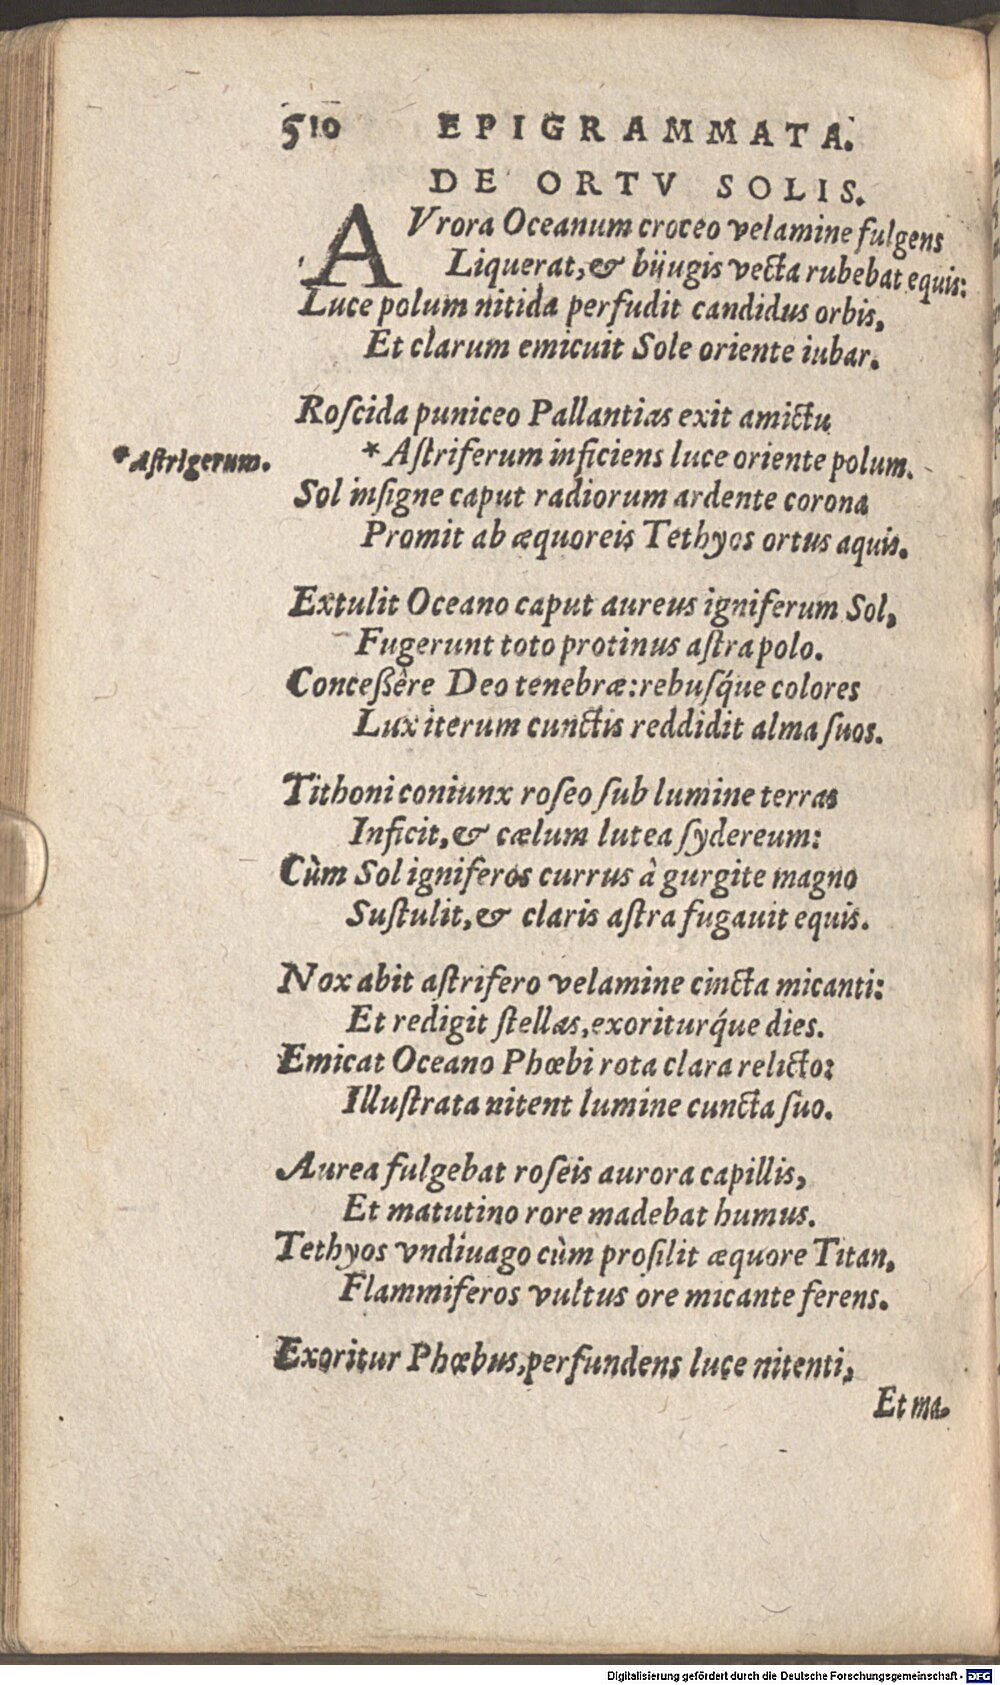 510 EPIGRAMMATA.
DE ORTV SOLIS.
AVrora Oceanum croceo velamine fulgens
Liquerat, & biiugis vecta rubebat equis:
Luce polum nitida perfudit candidus orbis,
Et clarum emicuit Sole oriente iubar.
Roſcida puniceo Pallantias exit amictu
*Aſtrigerum.
*Aſtriferum inficiens luce oriente polum.
Sol inſigne caput radiorum ardente corona
Promit ab æquoreis Tethyos ortus aquis.
Extulit Oceano caput aureus igniferum Sol,
Fugerunt toto protinus aſtra polo.
Conceßêre Deo tenebræ: rebuſq́ue colores
Lux iterum cunctis reddidit alma ſuos.
Tithoni coniunx roſeo ſub lumine terras
Inficit, & cælum lutea ſydereum:
Cùm Sol igniferos currus à gurgite magno
Suſtulit, & claris aſtra fugauit equis.
Nox abit aſtrifero velamine cincta micanti:
Et redigit ſtellas, exoriturq́ue dies.
Emicat Oceano Phœbi rota clara relicto:
Illuſtrata nitent lumine cuncta ſuo.
Aurea fulgebat roſeis aurora capillis,
Et matutino rore madebat humus.
Tethyos vndiuago cùm proſilit æquore Titan,
Flammiferos vultus ore micante ferens.
Exoritur Phœbus, perfundens luce nitenti,
Et ma-
Digitalisierung gefördert durch die Deutsche Forschungsgemeinschaft - DFG